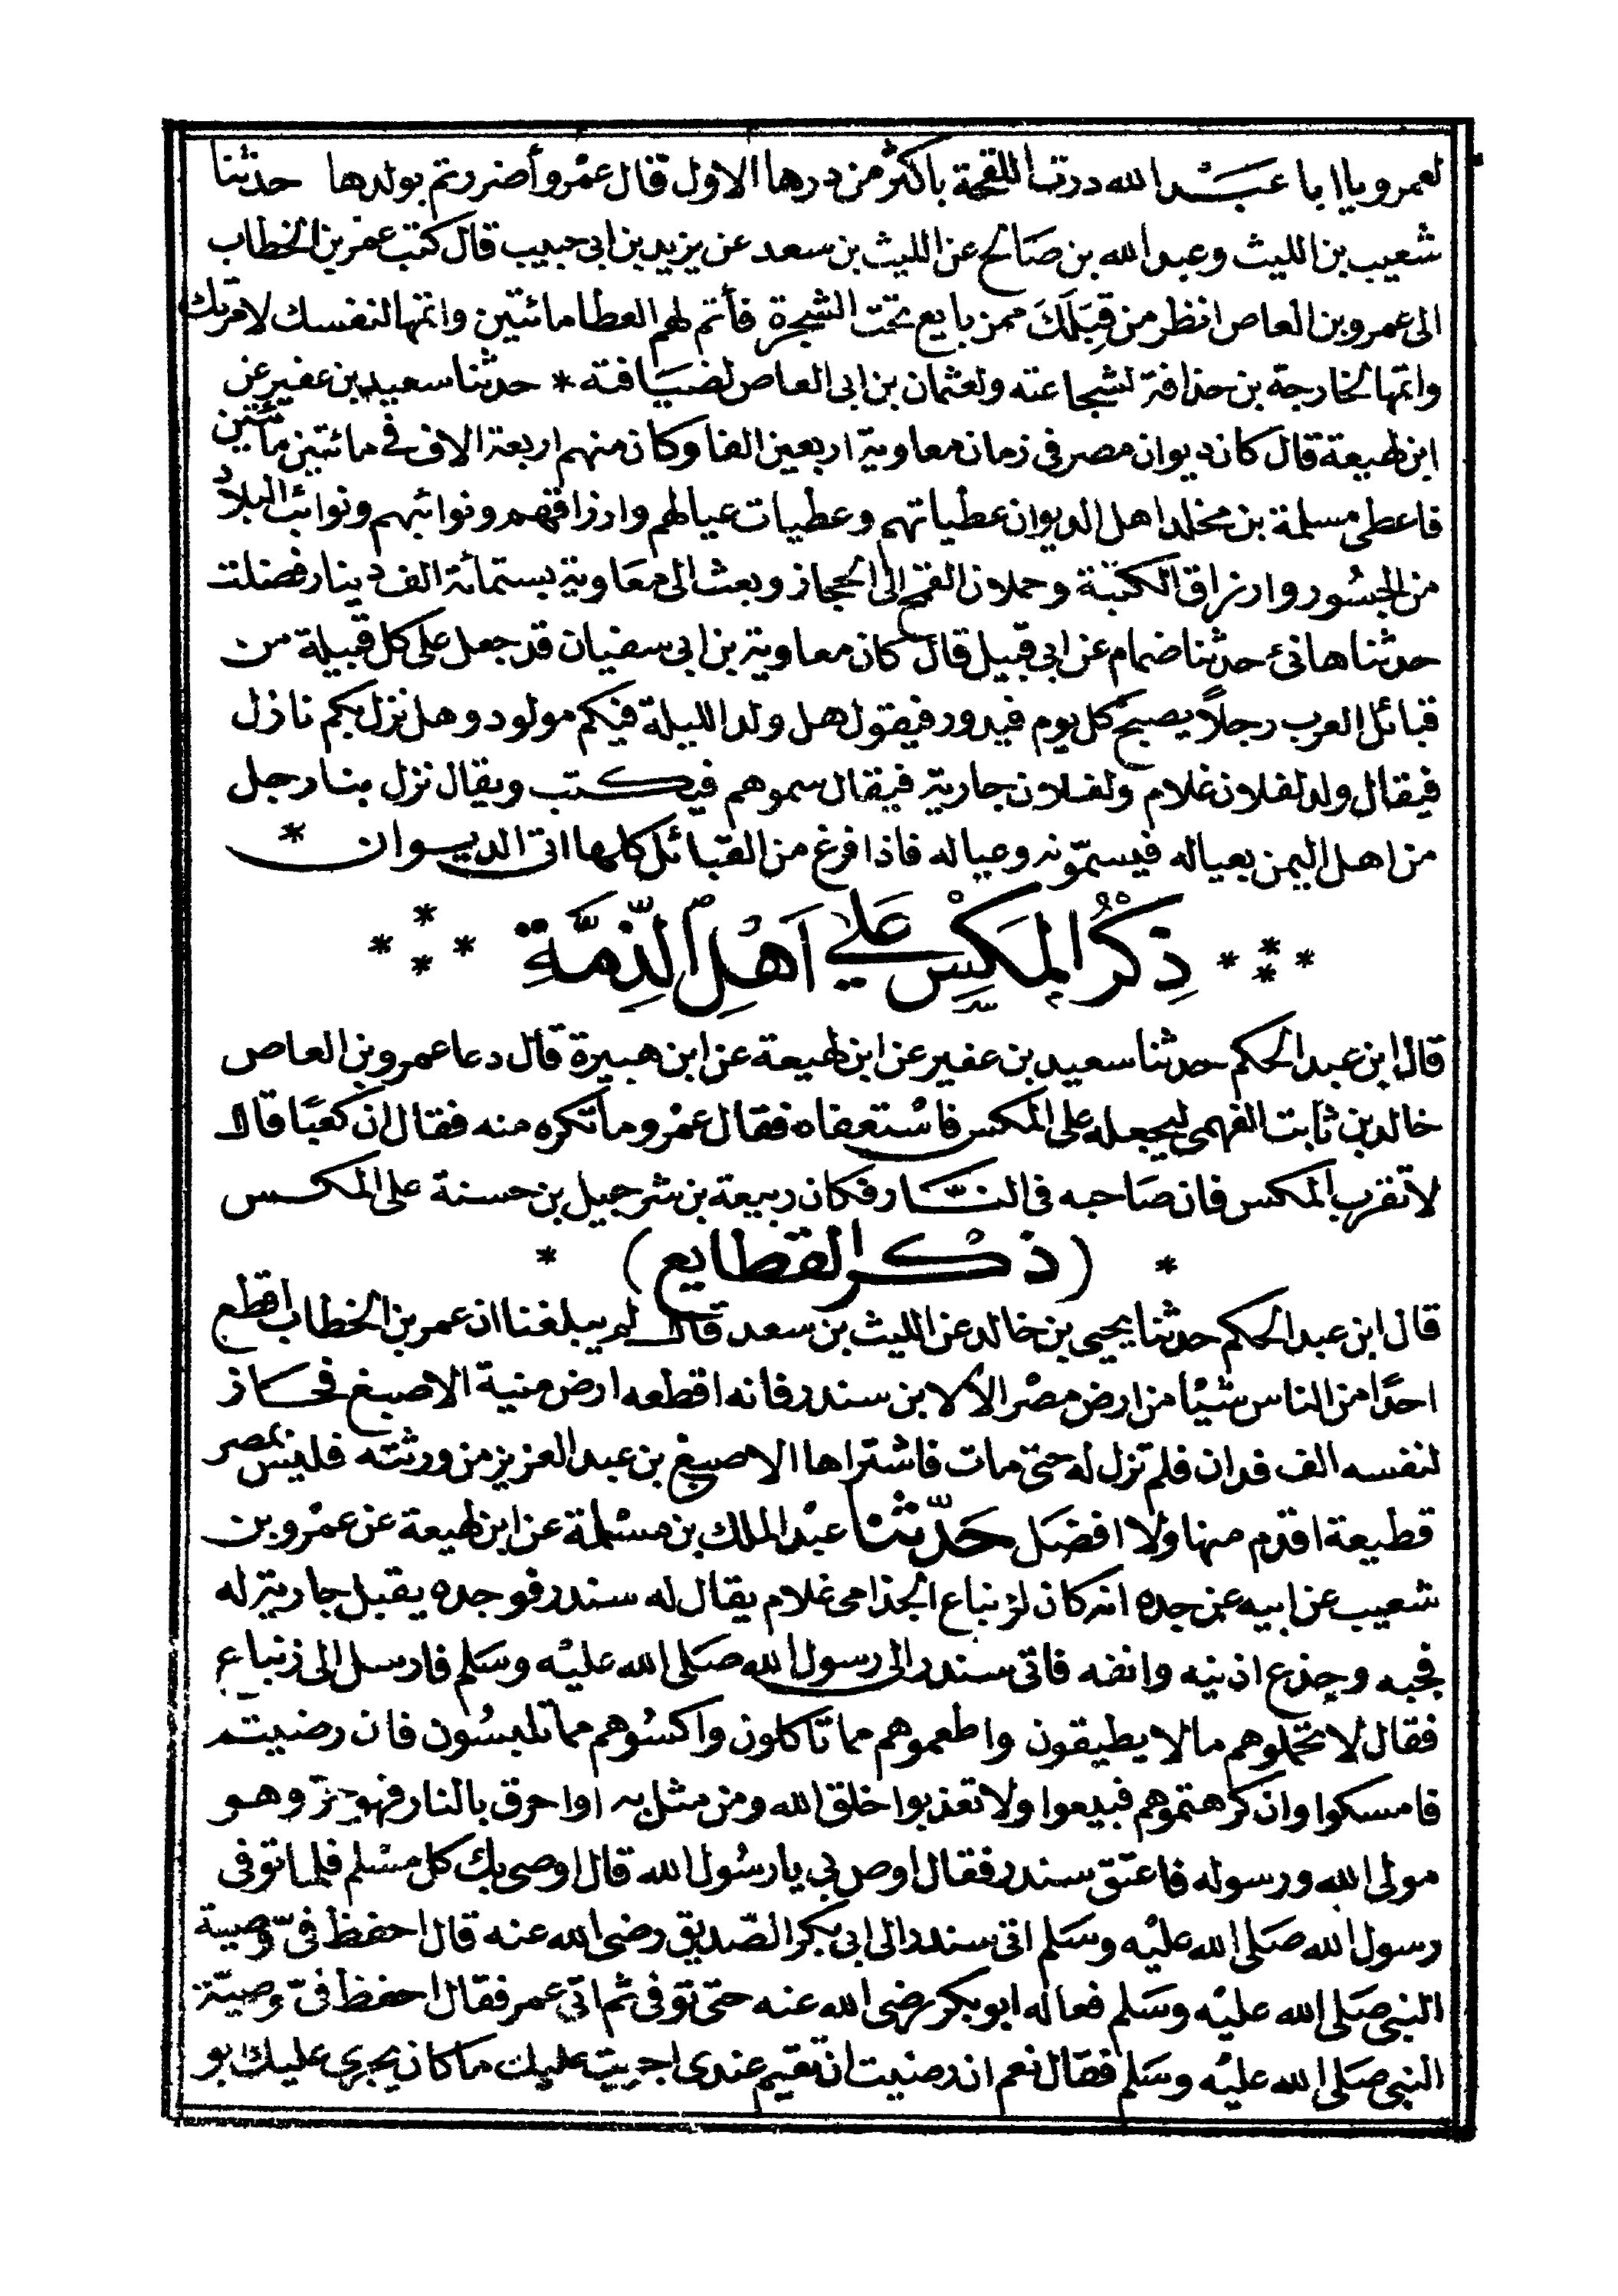 لعمرو يا ابا عبد الله درت اللقحة باكثر من درها الاول قال عمرو أضررتم بولدها حدثنا
شعيب بن الليث وعبد الله بن صالح عن الليث بن سعد عن يزيد بن ابى حبيب قال كتب عمر بن الخطاب
الى عمرو بن العاص انظر من قِبَلَكَ ممن بايع تحت الشجرة فأتم لهم العطا مائتين واتمها لنفسك لامرتك
واتمها لخارجة بن حذافة لشجاعته ولعثمان بن ابى العاص لضيافته * حدثنا سعيد بن عفير عن
ابن لهيعة قال كان ديوان مصر فى زمان معاوية اربعين الفا وكان منهم اربعة الاف فى مائتين مائتين
فاعطى مسلمة بن مخلد اهل الديوان عطياتهم وعطيات عيالهم وارزاقهم ونوائبهم ونوائب البلاد
من الجسور وارزاق الكتبة وحملان القمح الى الحجاز وبعث الى معاوية بستمائة الف دينار فضلت
حدثنا هانئ حدثنا ضمام عن ابى قبيل قال كان معاوية بن ابى سفيان قد جعل على كل قبيلة من
قبائل العرب رجلاً يصبح كل يوم فيدور فيقول هل ولد الليلة فيكم مولود وهل نزل بكم نازل
فيقال ولد لفلان غلام ولفلان جارية فيقال سموهم فيكتب ويقال نزل بنا رجل
من اهل اليمن بعياله فيسمّونه وعياله فاذا فرغ من القبائل كلها اتى الديوان *
ذِكْرُ المَكْسِ عَلى اَهْلِ الذِّمَّةِ
قال ابن عبد الحكم حدثنا سعيد بن عفير عن ابن لهيعة عن ابن هبيرة قال دعا عمرو بن العاص
خالد بن ثابت الفهمى ليجعله على المكس فاستعفاه فقال عمرو ما تكره منه فقال ان كعبًا قال
لا تقرب المكس فان صاحبه فى النار فكان ربيعة بن شرحبيل بن حسنة على المكس
* (ذكر القطايع) *
قال ابن عبد الحكم حدثنا يحيى بن خالد عن الليث بن سعد قال لم يبلغنا ان عمر بن الخطاب اقطع
احدًا من الناس شيئا من ارض مصر الا لابن سندر فانه اقطعه ارض منية الاصبغ فحاز
لنفسه الف فدان فلم تزل له حتى مات فاشتراها الاصبغ بن عبد العزيز من ورثته فليس بمصر
قطيعة اقدم منها ولا افضل حَدّثنا عبد الملك بن مسلمة عن ابن لهيعة عن عمرو بن
شعيب عن ابيه عن جده انه كان لزنباع الجذامى غلام يقال له سندر فوجده يقبل جارية له
فجبه وجذع اذنيه وانفه فاتى سندر الى رسول الله صَلى الله عليْه وسَلم فارسل الى زنباع
فقال لا تحملوهم ما لا يطيقون واطعموهم مما تاكلون واكسُوهم مما تلبسُون فان رضيتم
فامسكوا وان كرهتموهم فبيعوا ولا تعذبوا خلق الله ومن مثل به او احرق بالنار فهو حرّ وهو
مولى الله ورسوله فاعتق سندر فقال اوص بى يا رسُول الله قال اوصى بك كل مسْلم فلما توفى
رسول الله صَلى الله عليْه وسَلم اتى سندر الى ابى بكر الصّديق رضى الله عنه قال احفظ فىّ وصية
النبى صَلى الله عليْه وسَلم فعاله ابو بكر رضى الله عنه حتى توفى ثم اتى عمر فقال احفظ فىّ وصيّة
النبى صَلى الله عليْه وسَلم فقال نعم ان رضيت ان تقيم عندى اجريت عليك ما كان يجرى عليك ابو